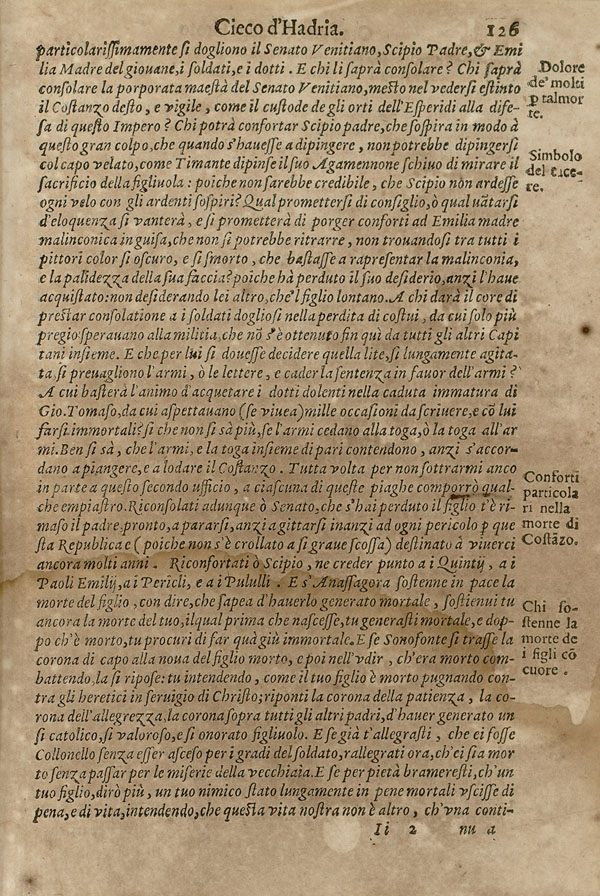 Cieco d'Hadria. 126
particolarissimamente si dogliono il Senato Venitiano, Scipio Padre, & Emi
lia Madre del giouane, i soldati, e i dotti. E chi li saprà consolare? Chi saprà
consolare la porporata maestà del Senato Venitiano, mesto nel vedersi estinto
il Costanzo desto, e vigile, come il custode de gli orti dell'Esperidi alla dife-
sa di questo Impero? Chi potrà confortar Scipio padre, che sospira in modo à
questo gran colpo, che quando s'hauesse a dipingere, non potrebbe dipingersi
col capo velato, come Timante dipinse il suo Agamennone schiuo di mirare il
sacrificio della figliuola: poiche non sarebbe credibile, che Scipio nòn ardesse
ogni velo con gli ardenti sospiri? Qual promettersi di consiglio, ò qual uãtarsi
d'eloquenza si vanterà, e si prometterà di porger conforti ad Emilia madre
malinconica in guisa, che non si potrebbe ritrarre, non trouandosi tra tutti i
pittori color si oscuro, e si smorto, che bastasse a rapresentar la malinconia,
e la palidezza della sua faccia? poiche hà perduto il suo desiderio, anzi l'haue
acquistato: non desiderando lei altro, che'l figlio lontano. A chi darà il core di
prestar consolatione a i soldati dogliosi nella perdita di costui, da cui solo più
pregio sperauano alla militia, che nõ s'è ottenuto fin quì da tutti gli altri Capi
tani insieme. E che per lui si douesse decidere quella lite, sì lungamente agita-
ta, si preuagliono l'armi, ò le lettere, e cader la sentenza in fauor dell'armi?
A cui basterà l'animo d'acquetare i dotti dolenti nella caduta immatura di
Gio. Tomaso, da cui aspettauano (se viuea) mille occasioni da scriuere, e cõ lui
farsi immortali? si che non si sà più, se l'armi cedano alla toga, ò la toga all'ar
mi. Ben si sà, che l'armi, e la toga insieme di pari contendono, anzi s'accor-
dano a piangere, e a lodare il Costanzo. Tutta volta per non sottrarmi anco
in parte a questo secondo ufficio, a ciascuna di queste piaghe comporrò qual-
che empiastro. Riconsolati adunque ò Senato, che s'hai perduto il figlio t'è ri-
maso il padre, pronto, a pararsi, anzi a gittarsi inanzi ad ogni pericolo p que
sta Republica e (poiche non s'è crollato a si graue scossa) destinato à viuerci
ancora molti anni. Riconfortati ò Scipio, ne creder punto a i Quintij, a i
Paoli Emilij, a i Pericli, e a i Pulu​lli. E s'Anassagora sostenne in pace la
morte del figlio, con dire, che sapea d'hauerlo generato mortale, sostienui tu
ancora la morte del tuo, ilqual prima che nascesse, tu generasti mortale, e dop-
po ch'è morto, tu procuri di far quà giù immortale. E se Sonofonte si trasse la
corona di capo alla noua del figlio morto, e poi nell'vdir, ch'era morto com-
battendo, la si ripose: tu intendendo, come il tuo figlio è morto pugnando con-
tra gli heretici in seruigio di Christo; riponti la corona della patienza, la co-
rona dell'allegrezza, la corona sopra tutti gli altri padri, d'hauer generato un
sì catolico, sì valoroso, e sì onorato figliuolo. E se già t'allegrasti, che ei fosse
Collonello senza esser asceso per i gradi del soldato, rallegrati ora, ch'ei sia mor
to senza passar per le miserie della vecchiaia. E se per pietà brameresti, ch'un
tuo figlio, dirò più, un tuo nimico stato lungamente in pene mortali vscisse di
pena, e di vita, intendendo, che questa vita nostra non è altro, ch'vna conti-
Ii 2 nu a
Dolore
de' molti
p tal mor
te.
Simbolo
del Cice-
re.
Conforti
particola
ri nella
morte di
Costãzo.
Chi so-
stenne la
morte de
i figli cõ
cuore.